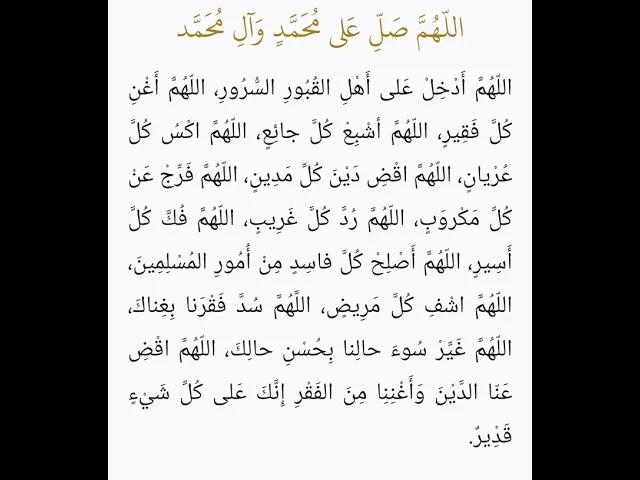 اللّهُمَّ صَلِّ عَلى مُحَمَّدٍ وَآلِ مُحَمَّد
اللّهُمَّ أَدْخِلْ عَلى أَهْلِ القُبُورِ السُّرُورِ، اللّهُمَّ أَغْنِ
كُلَّ فَقِيرٍ، اللّهُمَّ أشْبِعْ كُلَّ جائِعٍ، اللّهُمَّ اكْسُ كُلَّ
عُرْيانٍ، اللّهُمَّ اقْضِ دَيْنَ كُلِّ مَدِينٍ، اللّهُمَّ فَرِّجْ عَنْ
كُلِّ مَكْروَبٍ، اللّهُمَّ رُدَّ كُلَّ غَرِيبٍ، اللّهُمَّ فُكَّ كُلَّ
أَسِيرٍ، اللّهُمَّ أَصْلِحْ كُلَّ فاسِدٍ مِنْ أُمُورِ المُسْلِمِينَ،
اللّهُمَّ اشْفِ كُلَّ مَرِيضٍ، اللَّهُمَّ سُدَّ فَقْرَنا بِغِناكَ،
اللّهُمَّ غَيِّرْ سُوءَ حالِنا بِحُسْنِ حالِكَ، اللّهُمَّ اقْضِ
عَنّا الدَّيْنَ وَأَغْنِنِا مِنَ الفَقْرِ إِنَّكَ عَلى كُلِّ شَيْءٍ
قَدْيِرٌ.